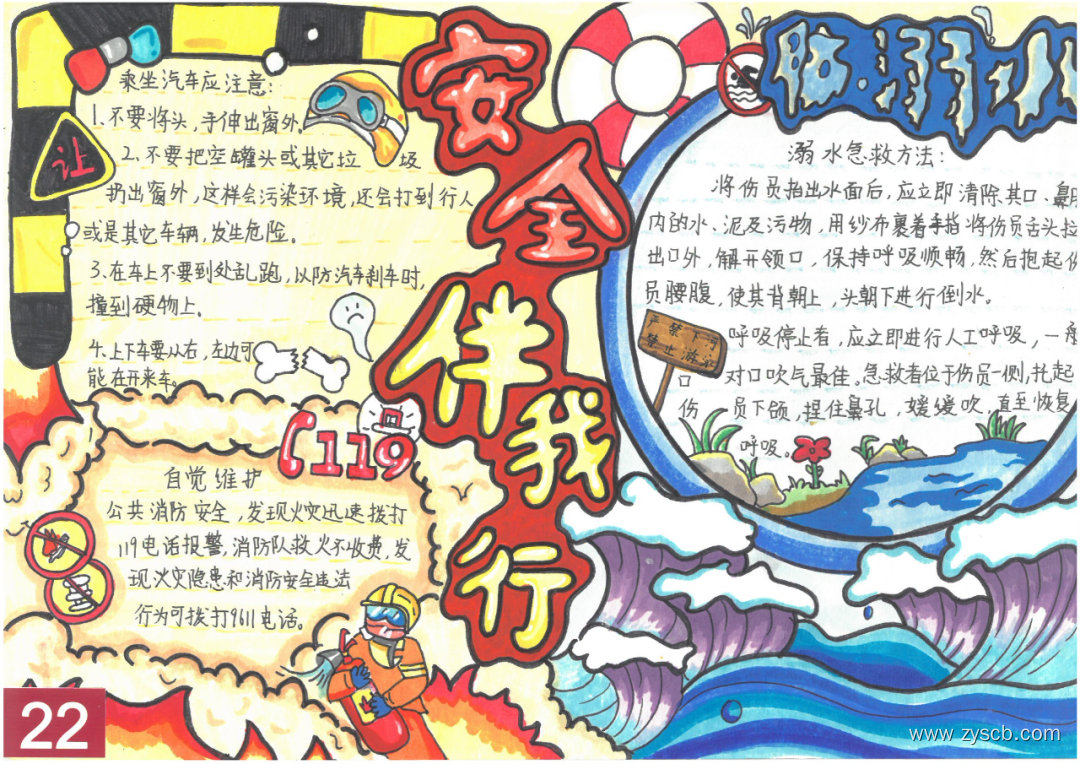 安全伴我行
防溺水
乘坐汽车应注意:
1.不要将头,手伸出窗外。
2.不要把空罐头或其它垃圾
扔出窗外,这样会污染环境,还会打到行人
或是其它车辆,发生危险。
3.在车上不要到处乱跑,以防汽车刹车时,
撞到硬物上。
4.上下车要从右,左边可
能在开来车。
让
119
自觉维护
公共消防安全,发现火灾迅速拨打
119电话报警,消防队救火不收费,发
现火灾隐患和消防安全违法
行为可拨打9611电话。
溺水急救方法:
将伤员抬出水面后,应立即清除其口、鼻腔
内的水、泥及污物,用纱布裹着手指将伤员舌头拉
出口外,解开领口,保持呼吸顺畅,然后抱起伤
员腰腹,使其背朝上,头朝下进行倒水。
呼吸停止者,应立即进行人工呼吸,一般
口对口吹气最佳。急救者位于伤员一侧,托起
伤员下颌,捏住鼻孔,缓缓吹,直至恢复
呼吸。
严禁下河
禁止游泳
22
www.zyscb.com